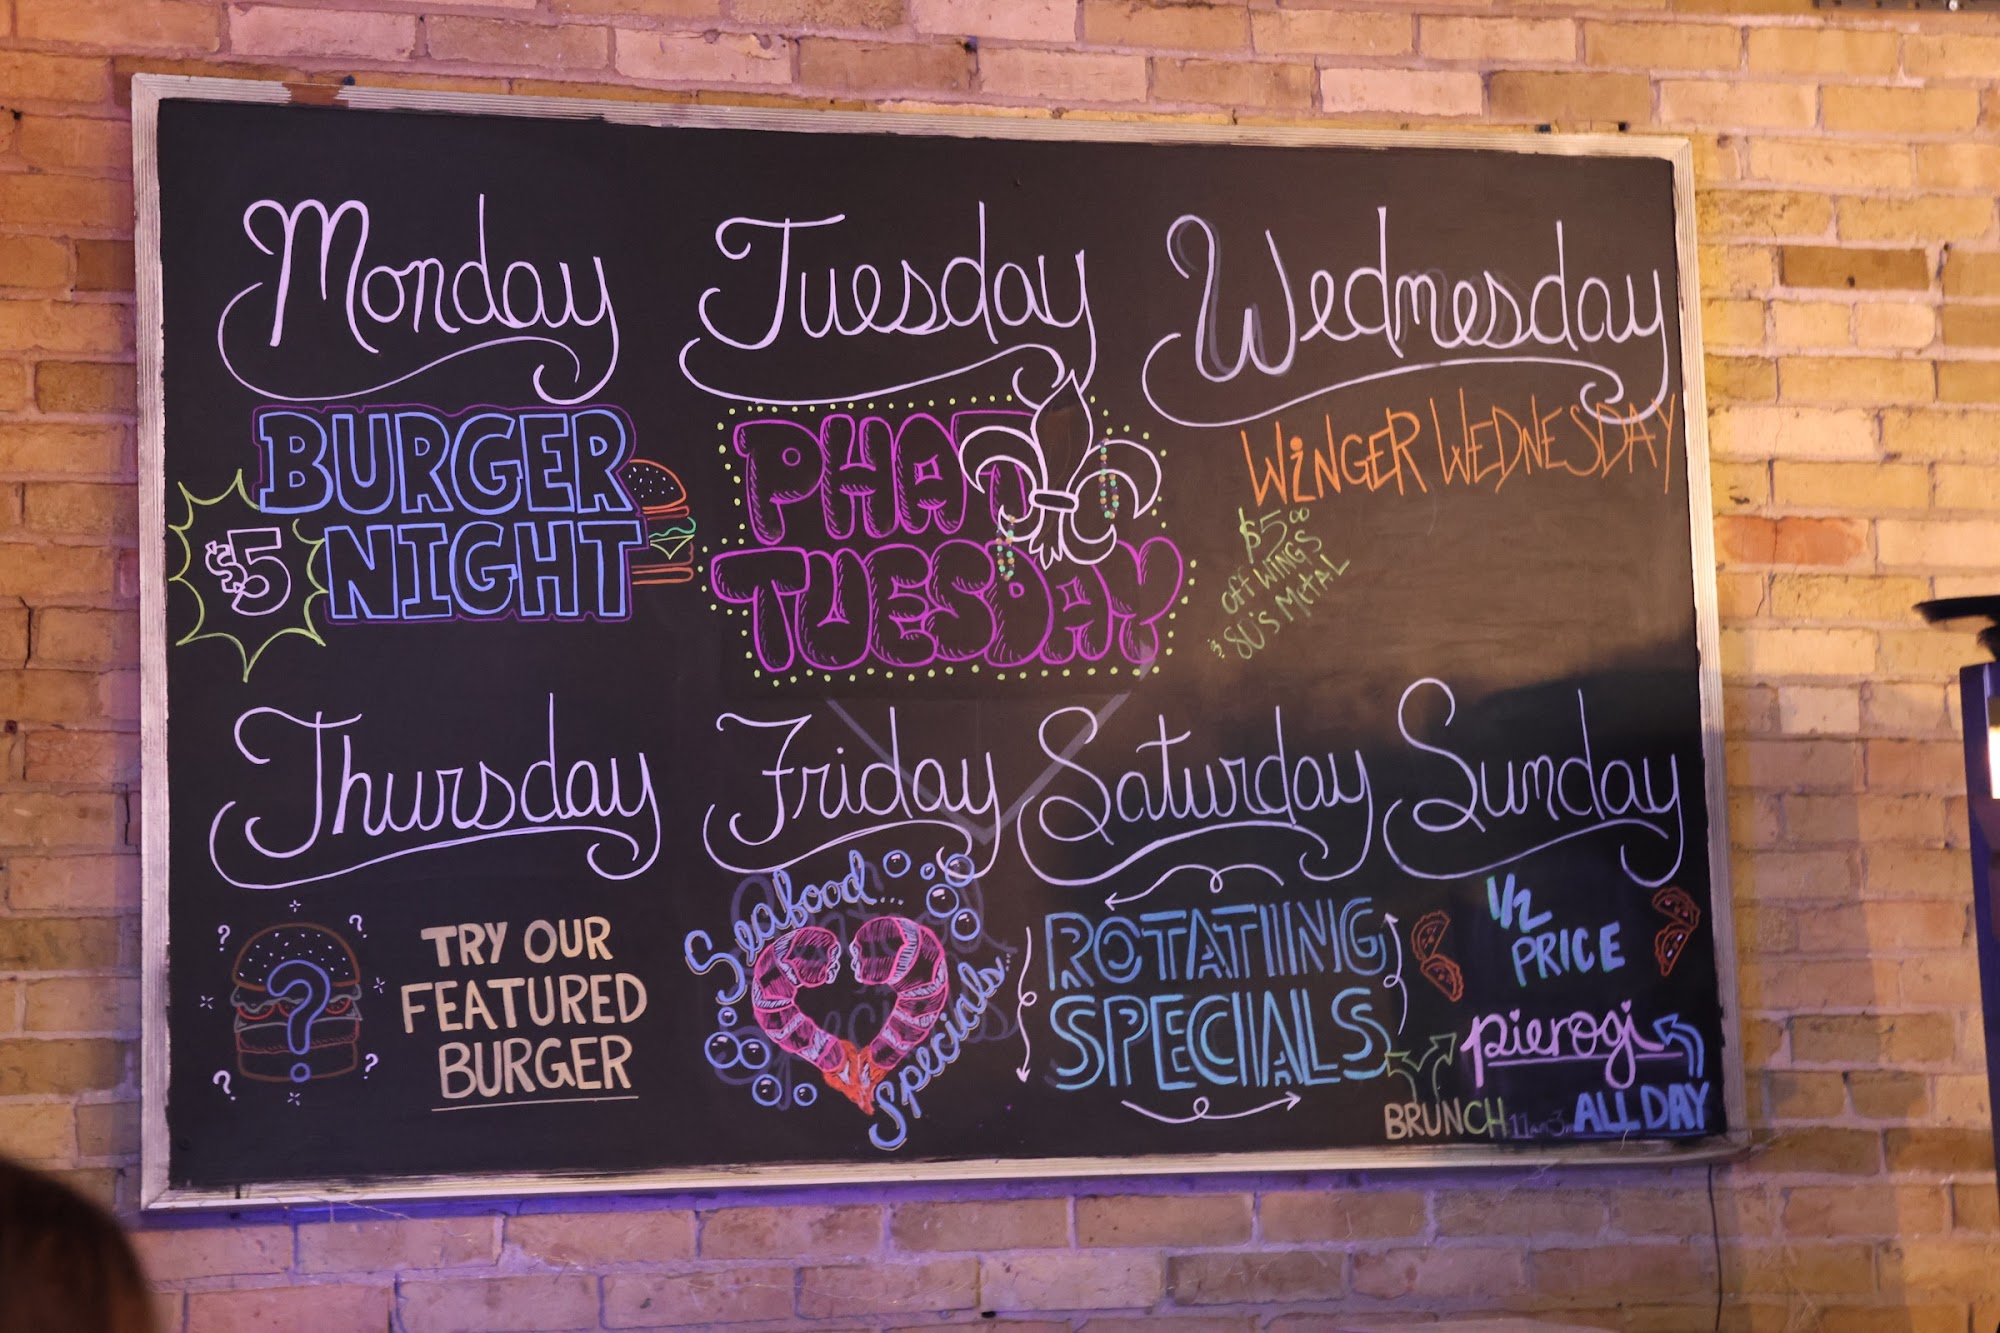 Monday
BURGER
NIGHT
$5
Tuesday
PHAT
TUESDAY
Wednesday
WiNGER WEDNESDAY
$5.00
off WINGS
& 80's MetAL
Thursday
TRY OUR
FEATURED
BURGER
Friday
Seafood...
Specials...
Saturday
ROTATIING
SPECIALS
Sunday
1/2
PRICE
pierogi
ALL DAY
BRUNCH 11am-3